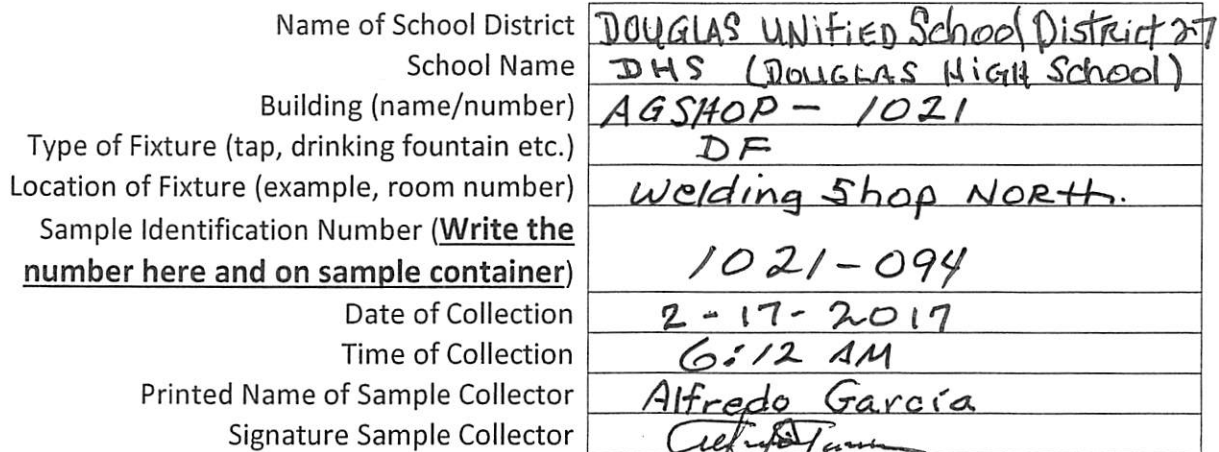 Name of School District DOUGLAS UNiFiED School District 27
School Name DHS (DOUGLAS HiGH School)
Building (name/number) AGSHOP - 1021
Type of Fixture (tap, drinking fountain etc.) DF
Location of Fixture (example, room number) Welding Shop NORth.
Sample Identification Number (Write the
number here and on sample container) 1021-094
Date of Collection 2-17-2017
Time of Collection 6:12 AM
Printed Name of Sample Collector Alfredo García
Signature Sample Collector